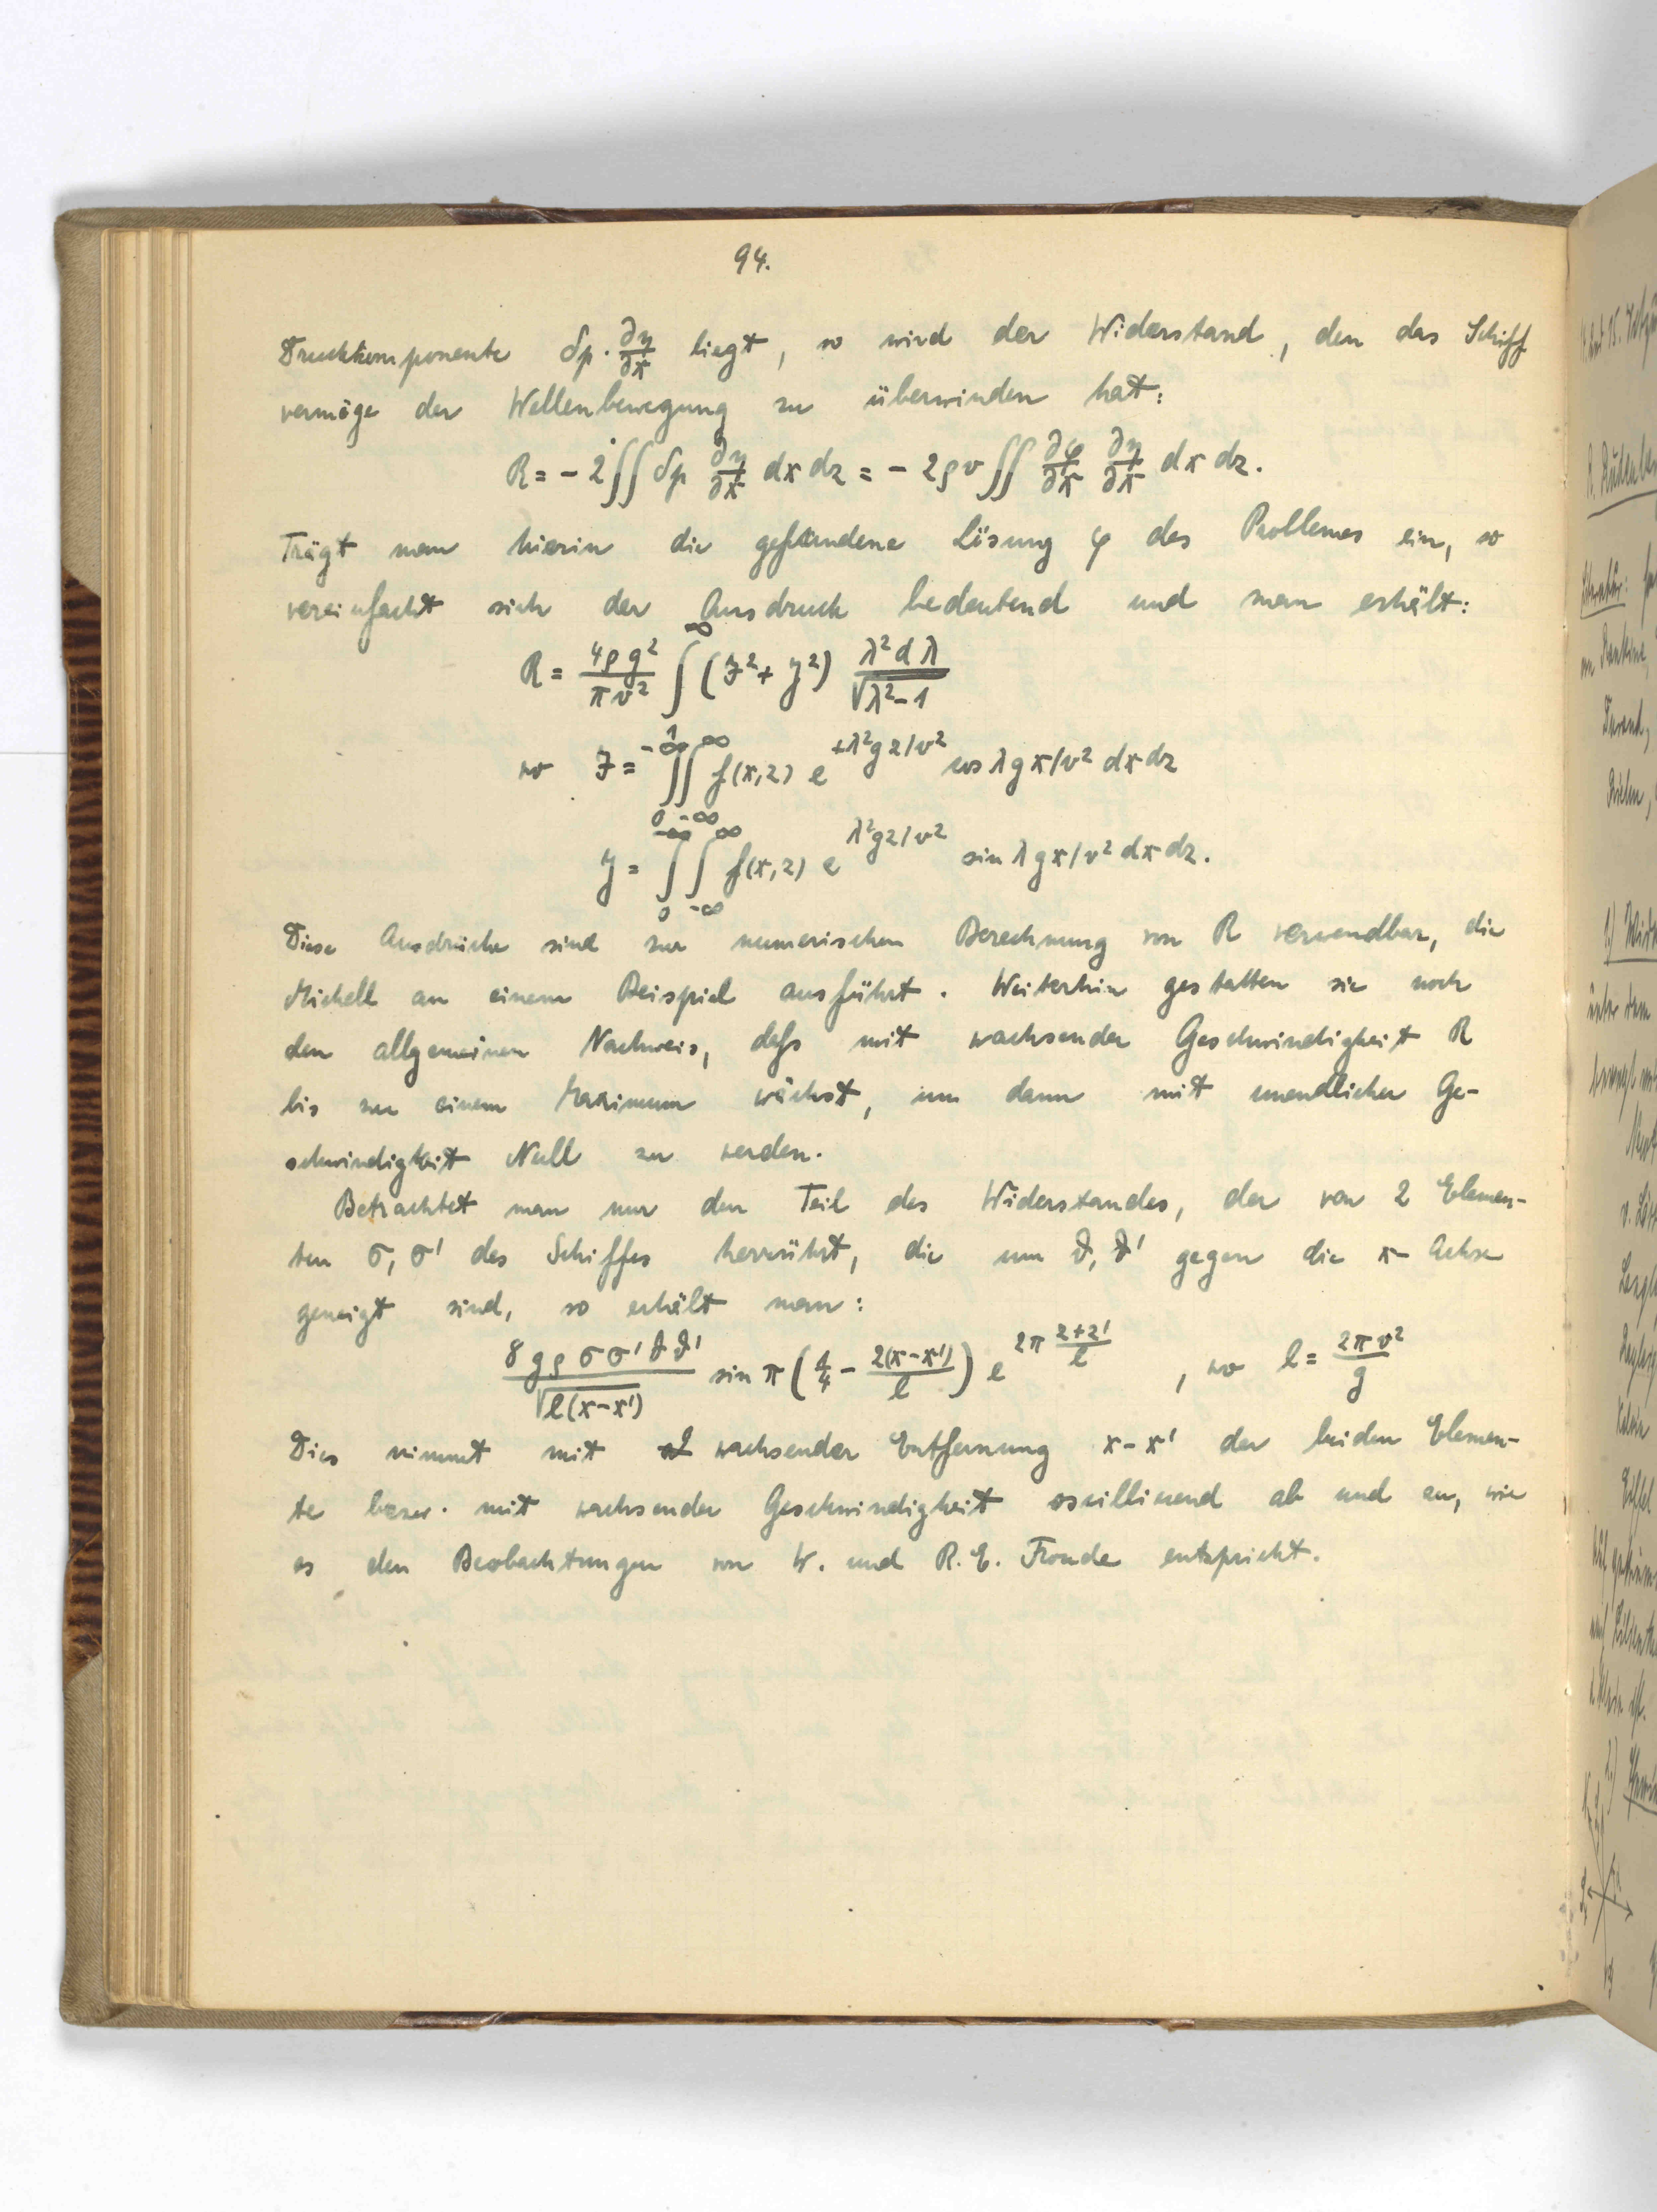 94.
Druckkomponente δp · ∂η/∂x liegt, so wird der Widerstand, den das Schiff
vermöge der Wellenbewegung zu überwinden hat:
R = - 2 ∫∫ δp ∂η/∂x dx dz = - 2ρv ∫∫ ∂φ/∂x ∂η/∂x dx dz.
Trägt man hierin die gefundene Lösung φ des Problemes ein, so
vereinfacht sich der Ausdruck bedeutend und man erhält:
R = 4ρg²/πv² ∫₁^∞ (J² + y²) λ²dλ/√(λ²-1)
wo J = ∫₀^-∞ ∫_-∞^∞ f(x,z) e^(+λ²gz/v²) cos λgx/v² dx dz
y = ∫₀^-∞ ∫_-∞^∞ f(x,z) e^(λ²gz/v²) sin λgx/v² dx dz.
Diese Ausdrücke sind zur numerischen Berechnung von R verwendbar, die
Michell an einem Beispiel ausführt. Weiterhin gestatten sie noch
den allgemeinen Nachweis, dass mit wachsender Geschwindigkeit R
bis zu einem Maximum wächst, um dann mit unendlicher Ge-
schwindigkeit Null zu werden.
Betrachtet man nur den Teil des Widerstandes, der von 2 Elemen-
ten σ, σ' des Schiffes herrührt, die um ϑ, ϑ' gegen die x-Achse
geneigt sind, so erhält man:
8gρσσ'ϑϑ'/√(l(x-x')) sin π (1/4 - 2(x-x')/l) e^(2π (z+z')/l), wo l = 2πv²/g
Dies nimmt mit wachsender Entfernung x-x' der beiden Elemen-
te bezw. mit wachsender Geschwindigkeit oscillierend ab und an, wie
es den Beobachtungen von W. und R.E. Froude entspricht.